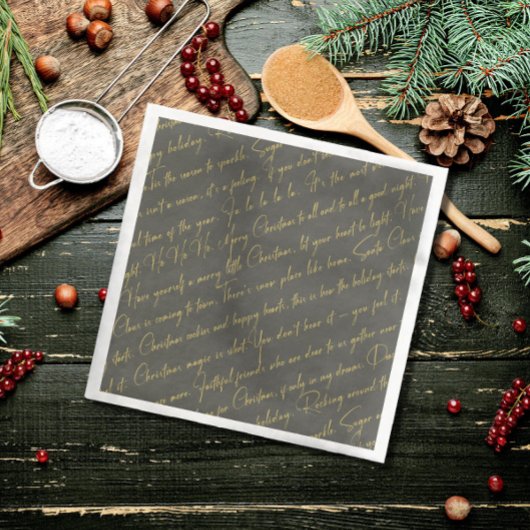 Christmas
holiday. R
my holiday. 'Tis the season to sparkle. Sugar
isn't a season, it's a feeling. If you don't be
ful time of the year. Fa la la la la... It's the most
night. Ho Ho Ho. Happy Christmas to all and to all a good night.
Have yourself a merry little Christmas, let your heart be light. Have
Claus is coming to town. There's snow place like home. Santa Claus
starts. Christmas cookies and happy hearts, this is how the holiday starts.
l it. Christmas magic is what You don't hear it – you feel it.
more. Faithful friends who are dear to us gather near
for Christmas, if only in my dreams. D
holiday. Rocking around t
sparkle. Sugar a